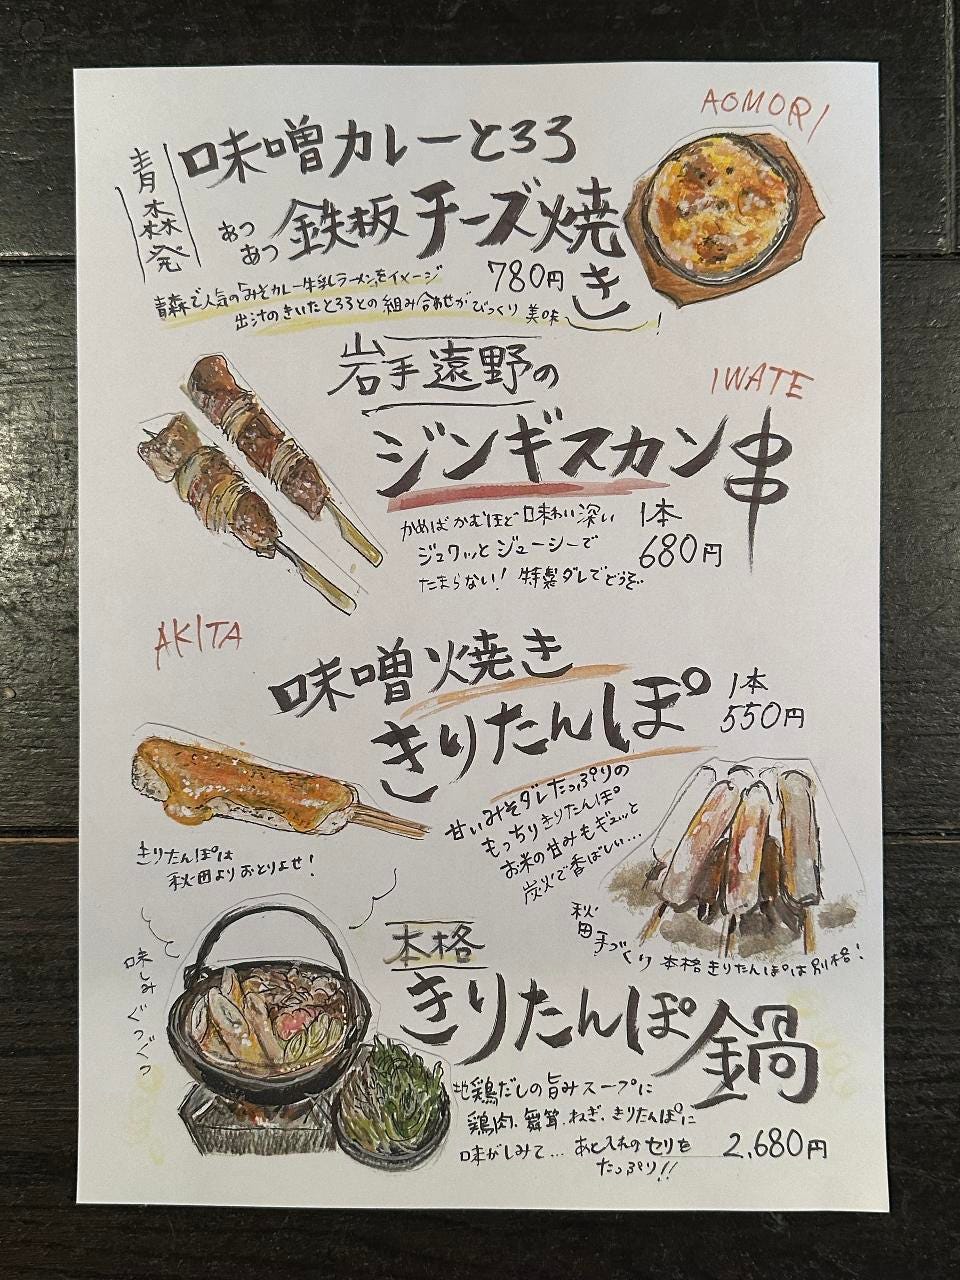 AOMORI
青森発
味噌カレーとろろ
あつあつ 鉄板チーズ焼き
780円
青森で人気の「みそカレー牛乳ラーメン」をイメージ
出汁のきいたとろろとの組み合わせがびっくり美味!
岩手遠野の
IWATE
ジンギスカン串
かめばかむほど味わい深い
ジュワッとジューシーで
たまらない! 特製ダレでどうぞ
1本
680円
AKITA
味噌焼き
きりたんぽ
1本
550円
甘いみそダレたっぷりの
もっちりきりたんぽ
お米の甘みもギュッと
炭火で香ばしい…
きりたんぽは
秋田よりおとりよせ!
秋田手づくり 本格きりたんぽは別格!
味しみ ぐつぐつ
本格
きりたんぽ鍋
地鶏だしの旨みスープに
鶏肉、舞茸、ねぎ、きりたんぽに
味がしみて… あと入れのセリを
たっぷり!!
2,680円